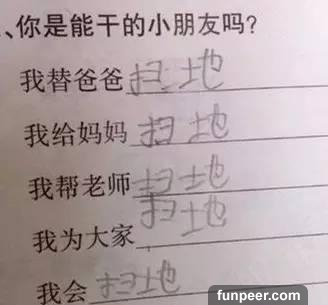 、你是能干的小朋友吗?
我替爸爸扫地
我给妈妈扫地
我帮老师扫地
我为大家扫地
我会扫地
funpeer.com